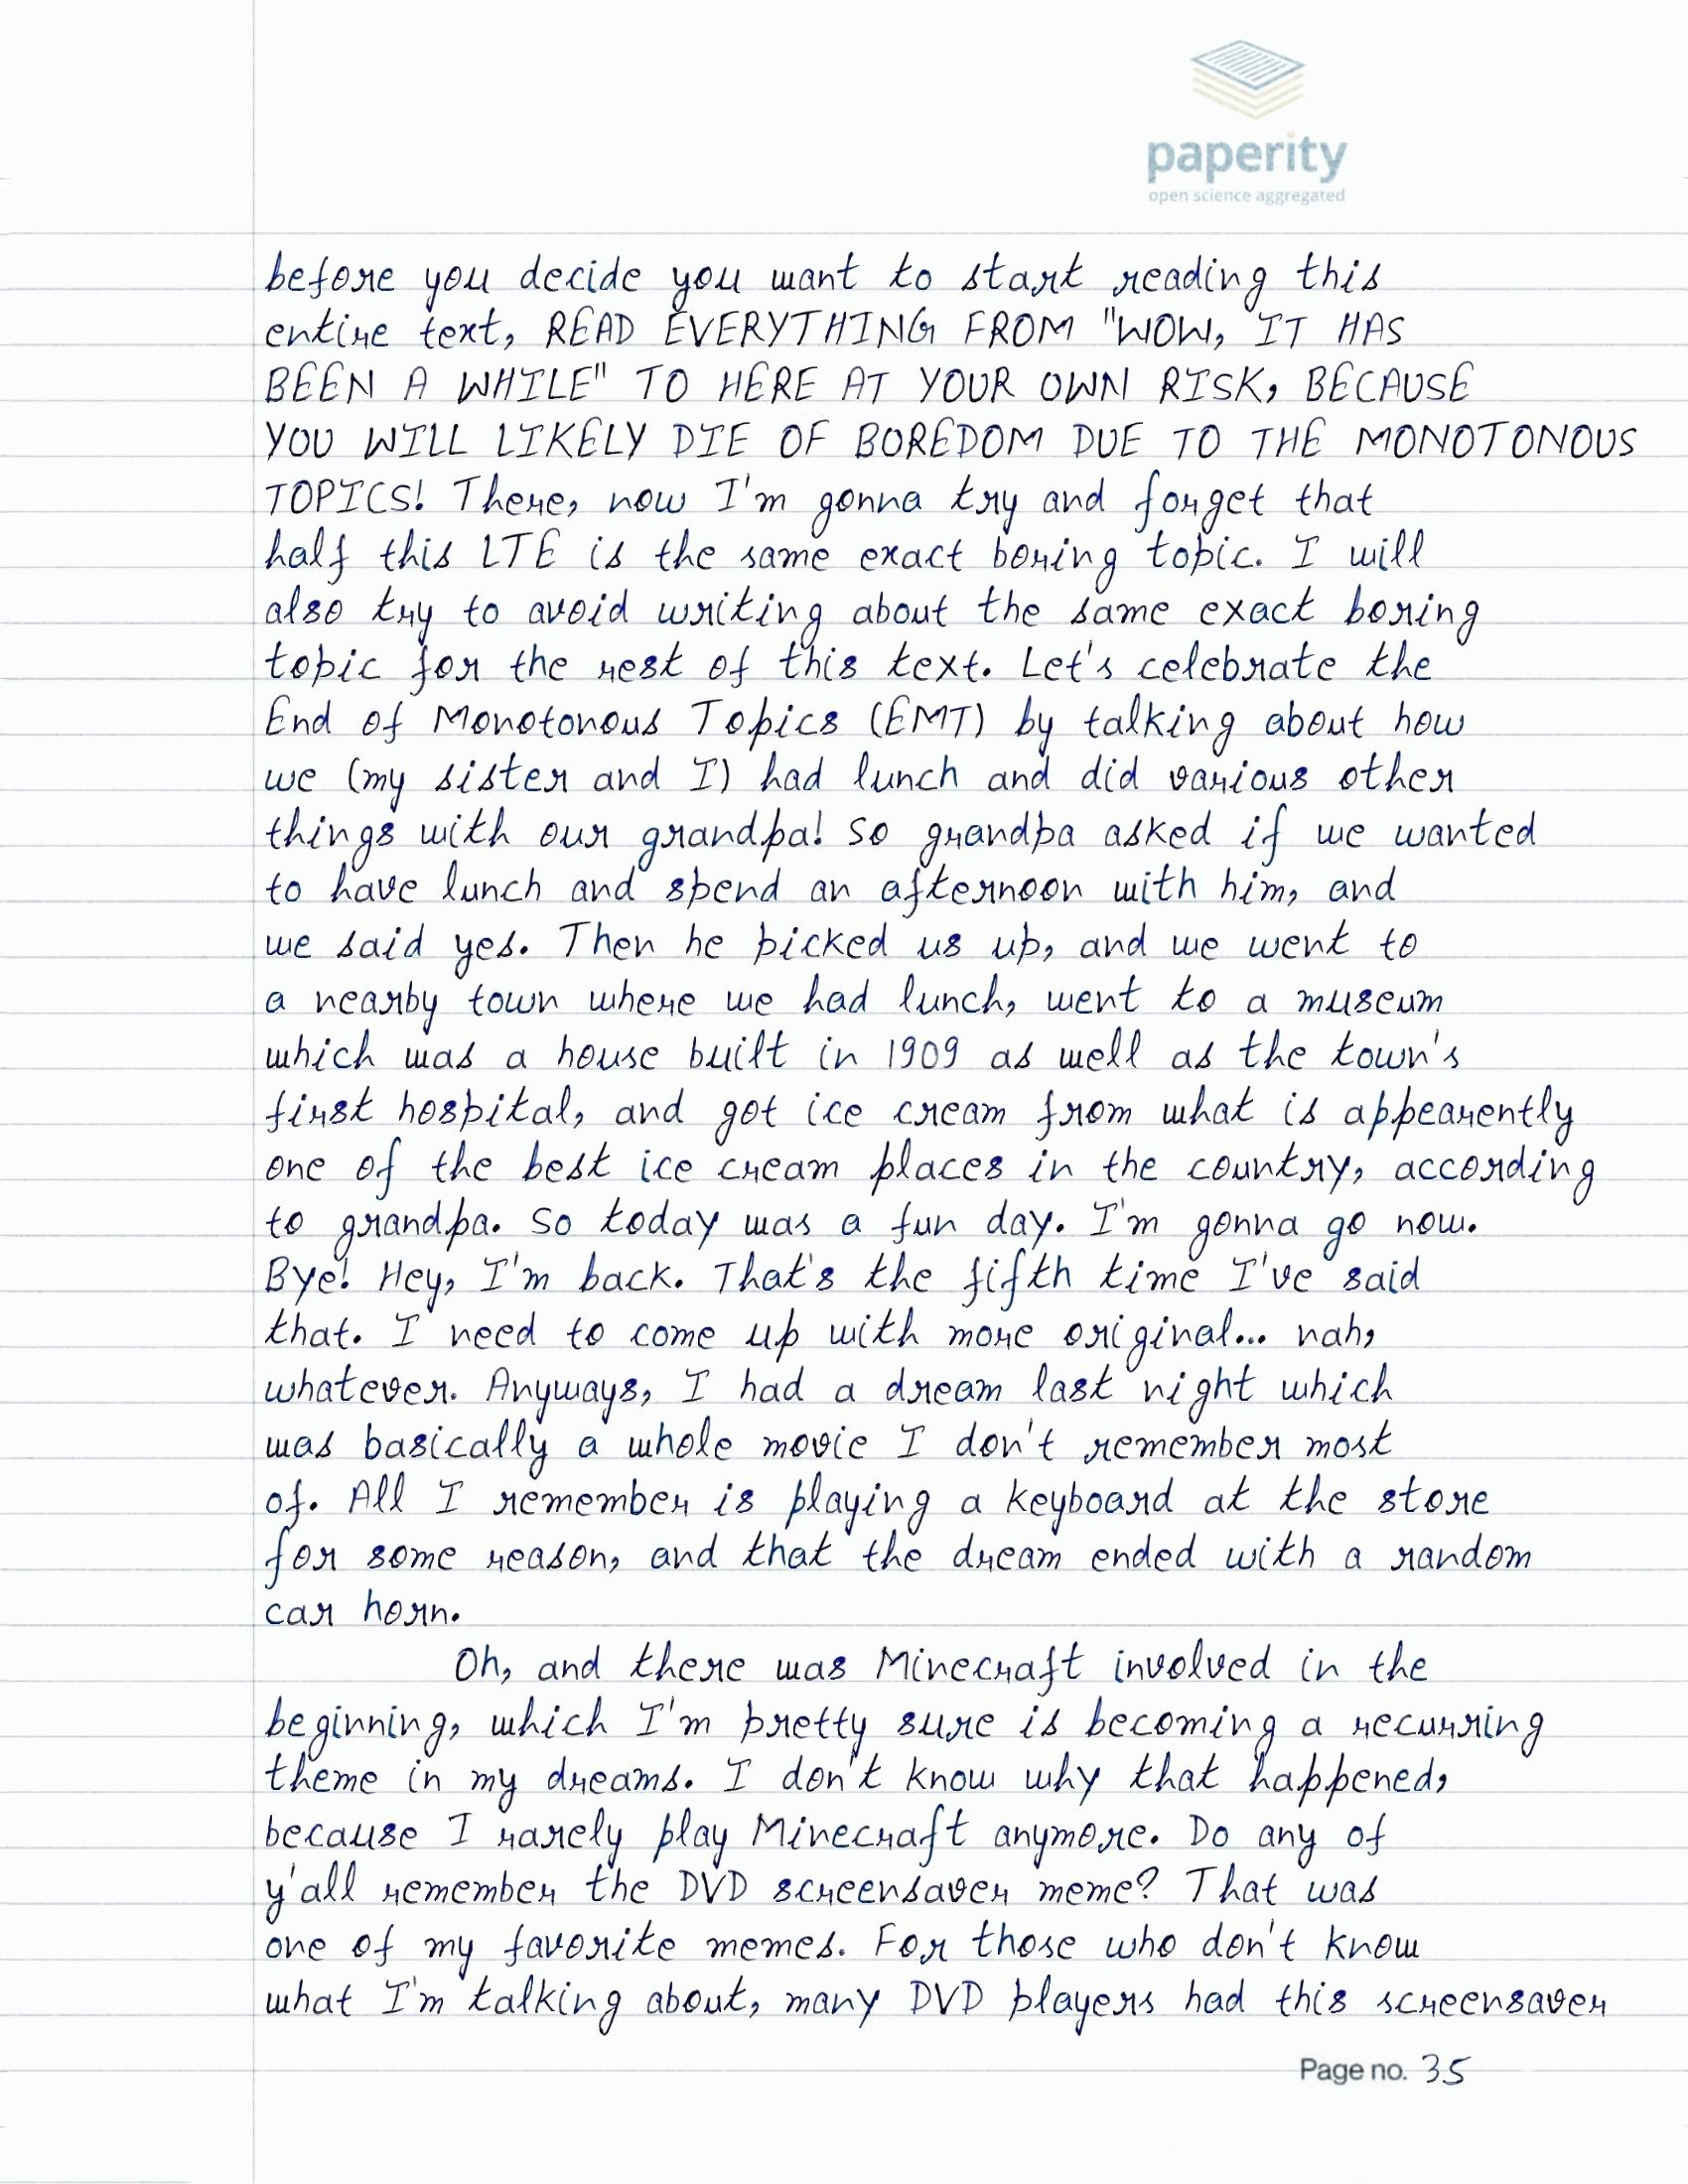 paperity
open science aggregated
before you decide you want to start reading this
entire text, READ EVERYTHING FROM "WOW, IT HAS
BEEN A WHILE" TO HERE AT YOUR OWN RISK, BECAUSE
YOU WILL LIKELY DIE OF BOREDOM DUE TO THE MONOTONOUS
TOPICS! There, now I'm gonna try and forget that
half this LTE is the same exact boring topic. I will
also try to avoid writing about the same exact boring
topic for the rest of this text. Let's celebrate the
End of Monotonous Topics (EMT) by talking about how
we (my sister and I) had lunch and did various other
things with our grandpa! So grandpa asked if we wanted
to have lunch and spend an afternoon with him, and
we said yes. Then he picked us up, and we went to
a nearby town where we had lunch, went to a museum
which was a house built in 1909 as well as the town's
first hospital, and got ice cream from what is appearently
one of the best ice cream places in the country, according
to grandpa. So today was a fun day. I'm gonna go now.
Bye! Hey, I'm back. That's the fifth time I've said
that. I need to come up with more original... nah,
whatever. Anyways, I had a dream last night which
was basically a whole movie I don't remember most
of. All I remember is playing a keyboard at the store
for some reason, and that the dream ended with a random
car horn.
Oh, and there was Minecraft involved in the
beginning, which I'm pretty sure is becoming a recurring
theme in my dreams. I don't know why that happened,
because I rarely play Minecraft anymore. Do any of
y'all remember the DVD screensaver meme? That was
one of my favorite memes. For those who don't know
what I'm talking about, many DVD players had this screensaver
Page no. 35